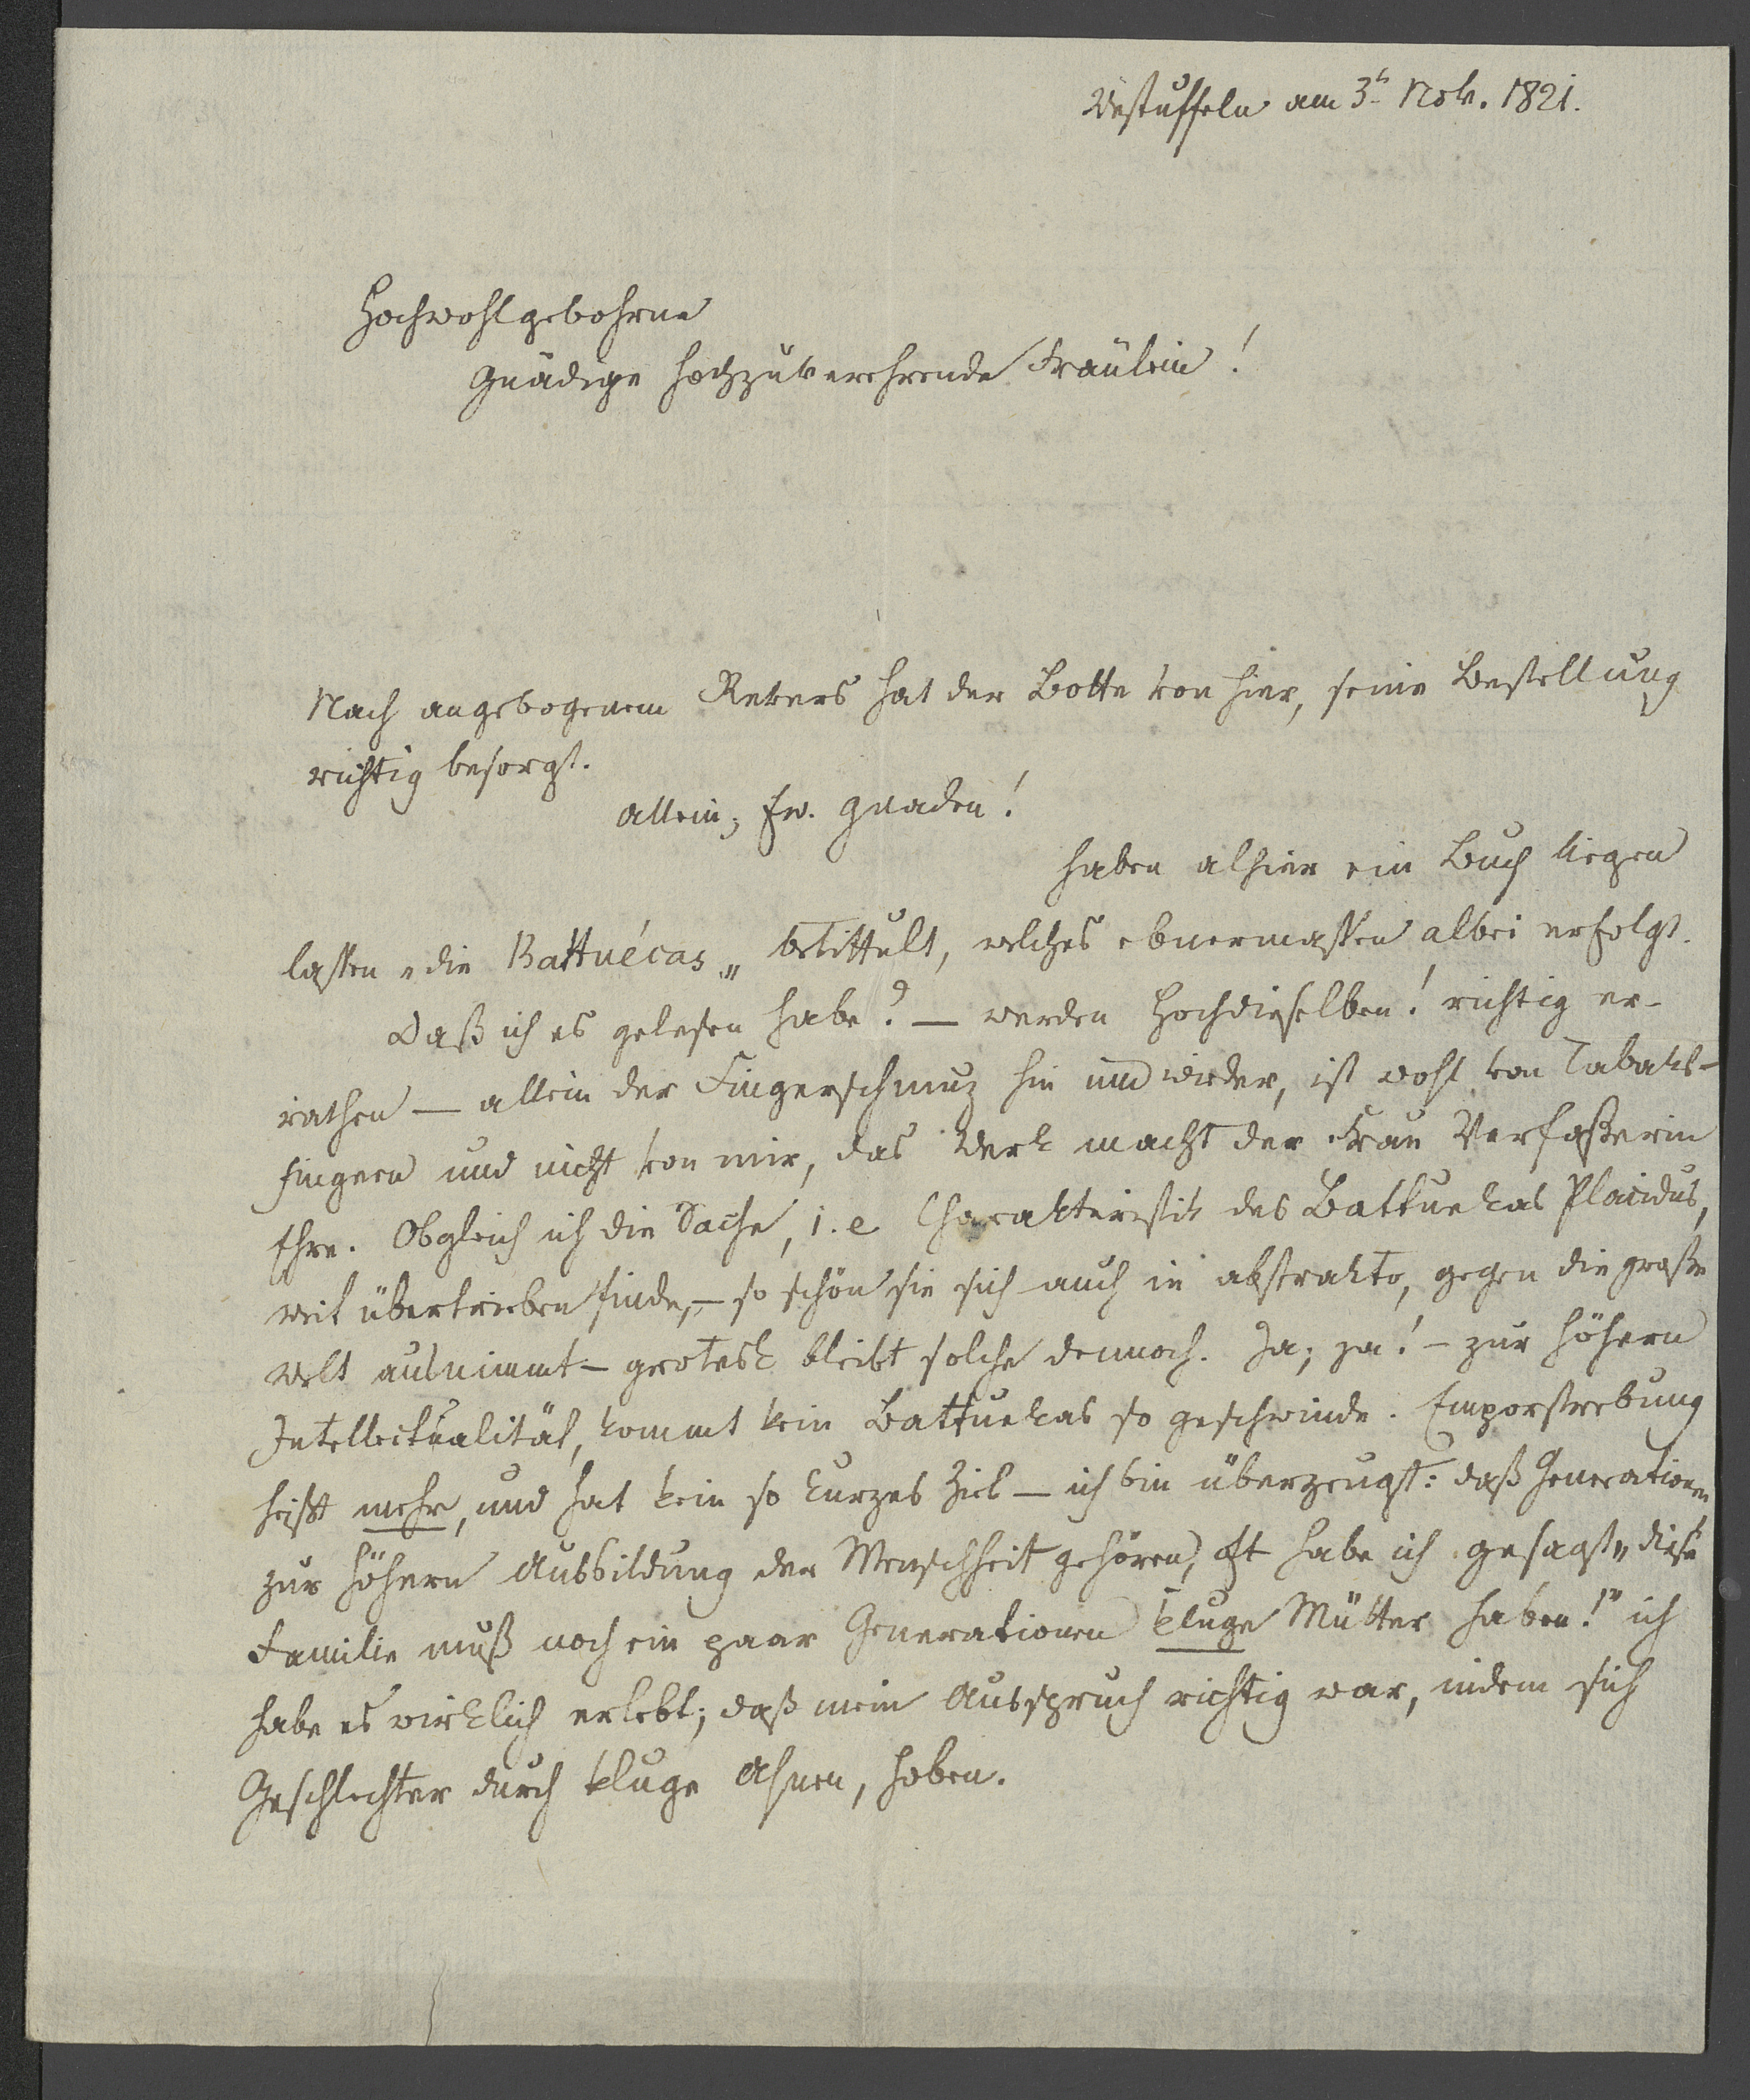 Westuffeln am 3t Nov. 1821.
Hochwohlgebohrne
Gnädige hochzuverehrende Fräulein!
Nach angebogenem Revers hat der Botte von hier, seine Bestellung
richtig besorgt.
Allein; Ew. Gnaden!
haben alhier ein Buch liegen
lassen „die Battuécas„ betittult, welches ebnermassen albei erfolgt.
Daß ich es gelesen habe? — werden Hochdieselben! richtig er-
rathen — allein der Fingerschmuz hin und wieder, ist wohl von Tabaks-
fingern und nicht von mir, das Werk macht der Frau Verfaßerin
Ehre. Obgleich ich die Sache, i. e Charakteristik des Battuekas Placidus,
weit übertrieben finde, — so schön sie sich auch in abstrakto, gegen die große
Welt ausnimmt — grotesk bleibt solche dennoch. Ja; ja! — zur höhern
Intellectualität, kommt kein Battuekas so geschwinde. Emporstrebung
heißt mehr, und hat kein so kurzes Ziel — ich bin überzeugt: daß Generationen
zur höhern Ausbildung der Menschheit gehören, oft habe ich gesagt „diese
Familie muß noch ein paar Generationen kluge Mütter haben!" ich
habe es wirklich erlebt; daß mein Ausspruch richtig war, indem sich
Geschlechter durch kluge Ahnen, hoben.